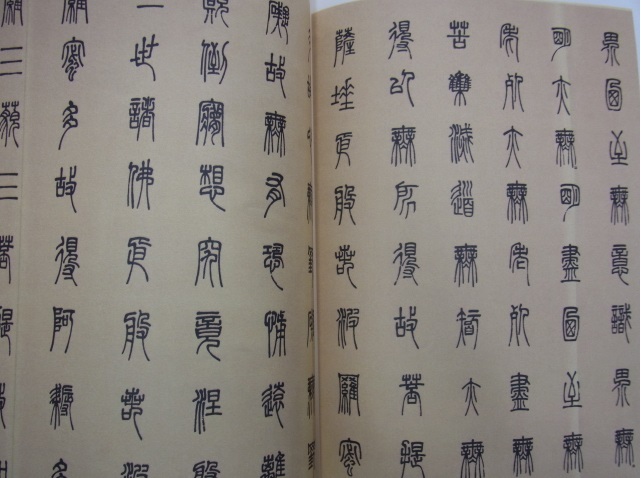 界乃至無意識界無
明亦無明盡乃至無
老死亦無老死盡無
苦集滅道無智亦無
得以無所得故菩提
薩埵依般若波羅蜜
多故心無罣礙無罣
礙故無有恐怖遠離
顛倒夢想究竟涅槃
三世諸佛依般若波
羅蜜多故得阿耨多
羅三藐三菩提故